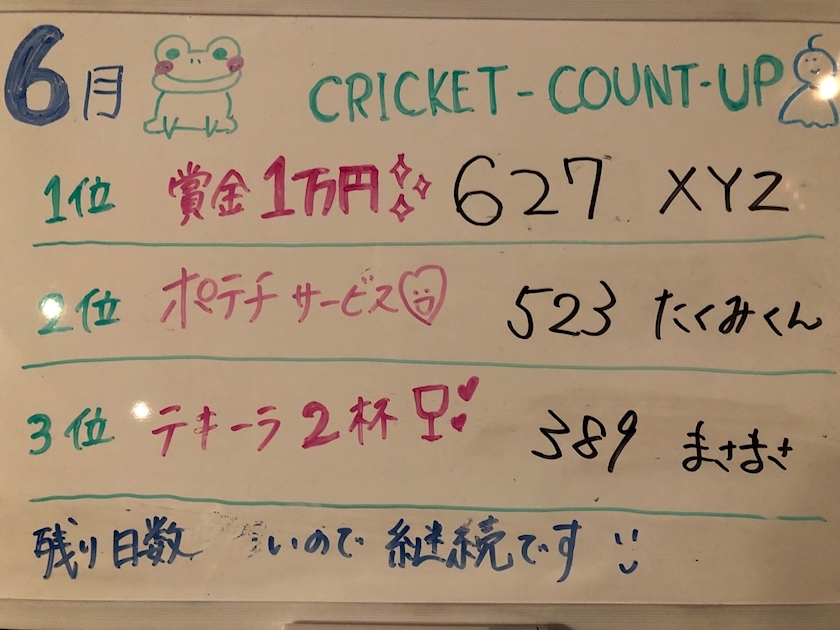 6月 CRICKET-COUNT-UP
1位 賞金1万円 627 XYZ
2位 ポテチサービス 523 たくみくん
3位 テキーラ2杯 389 まさまさ
残り日数 いので継続です